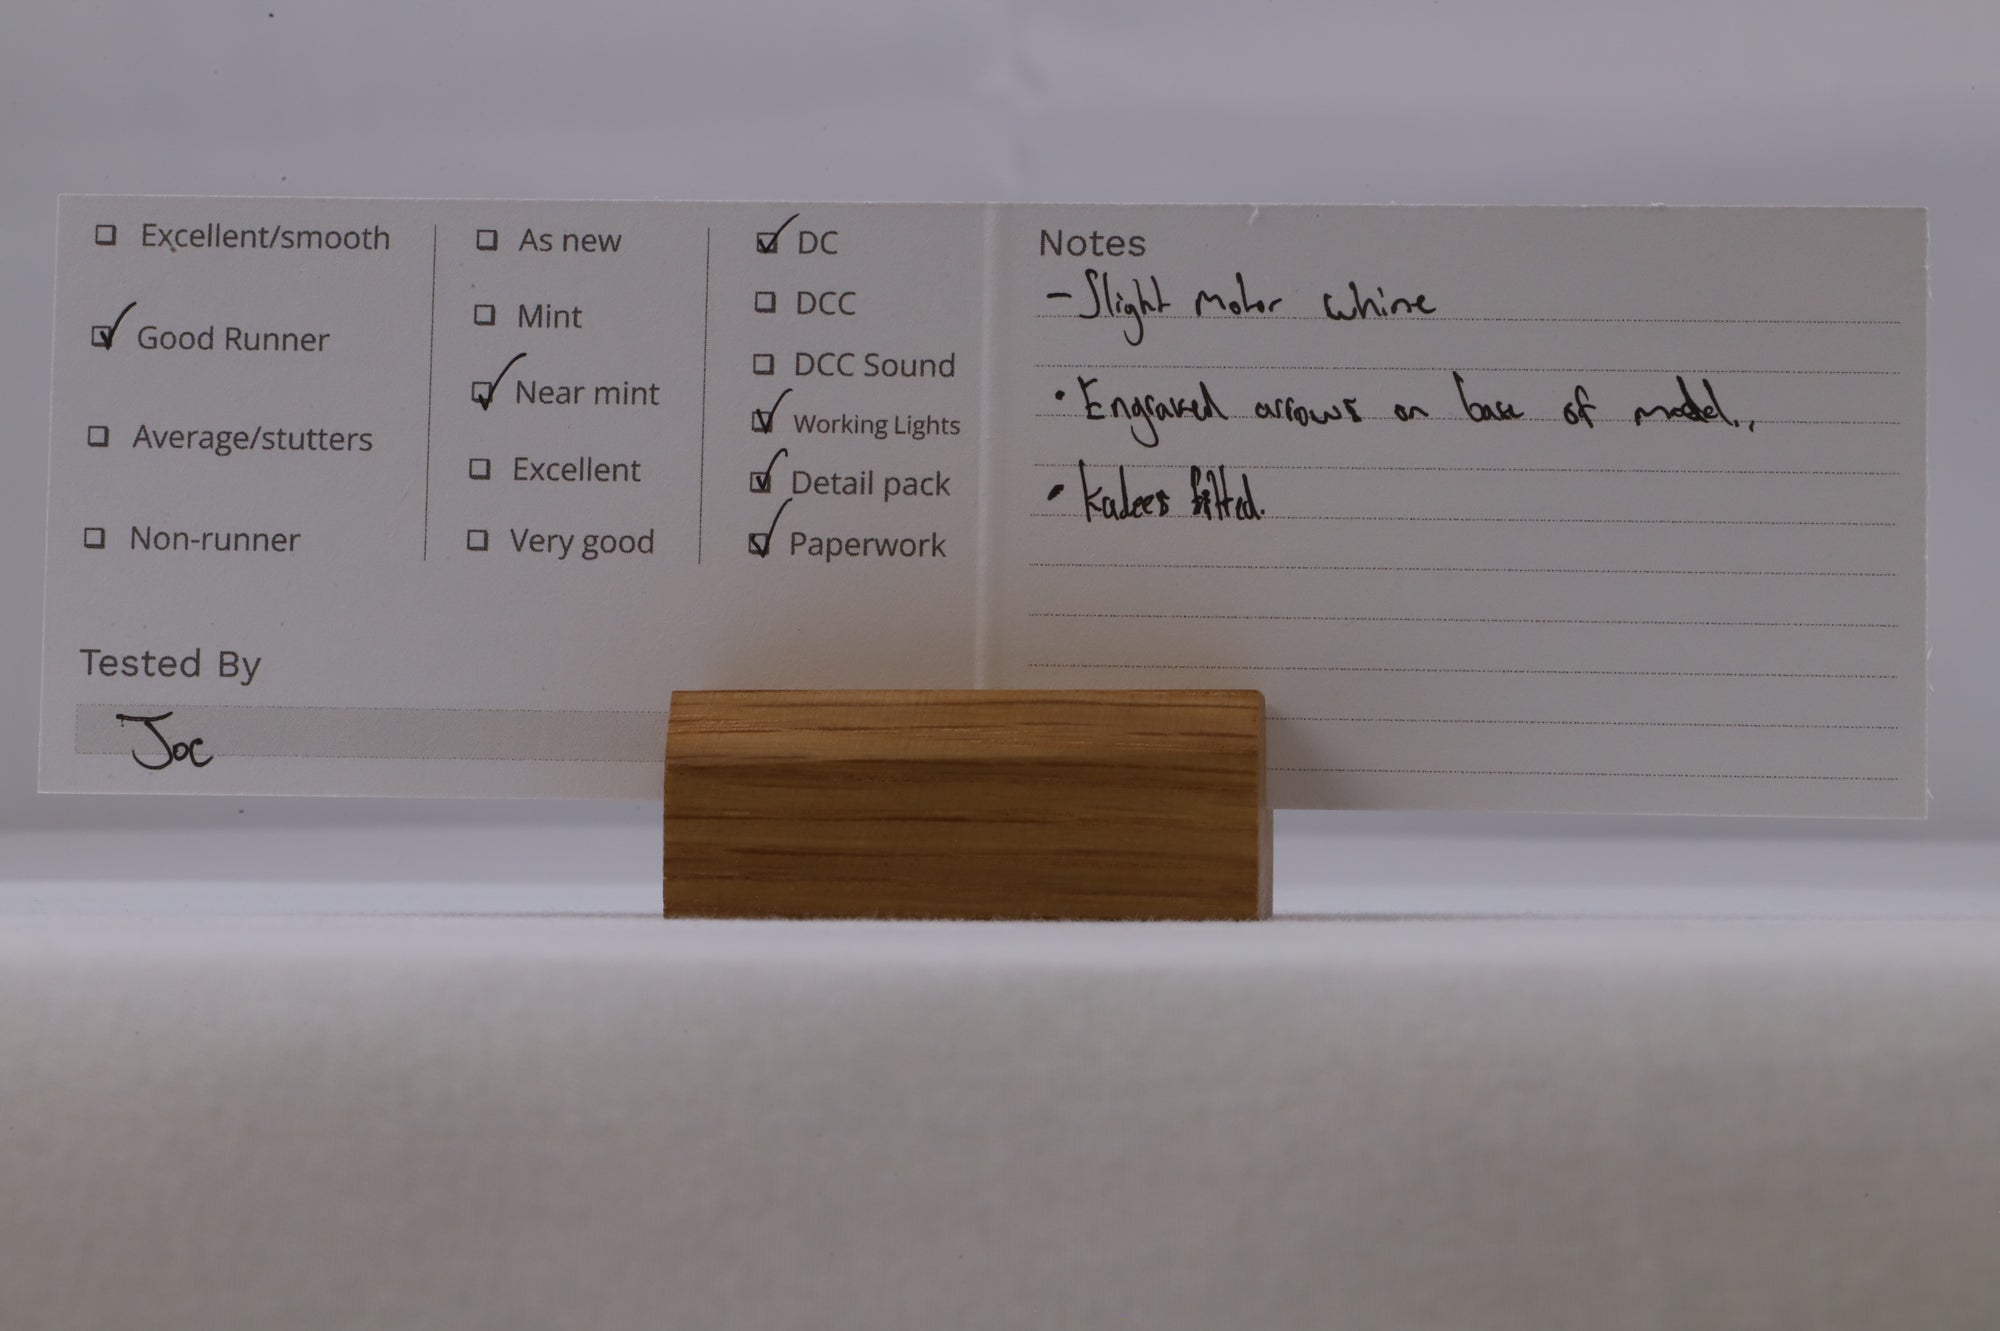 Excellent/smooth
Good Runner
Average/stutters
Non-runner
As new
Mint
Near mint
Excellent
Very good
DC
DCC
DCC Sound
Working Lights
Detail pack
Paperwork
Tested By
Joe
Notes
- Slight motor whine
• Engraved arrows on base of model.
• Kadees fitted.